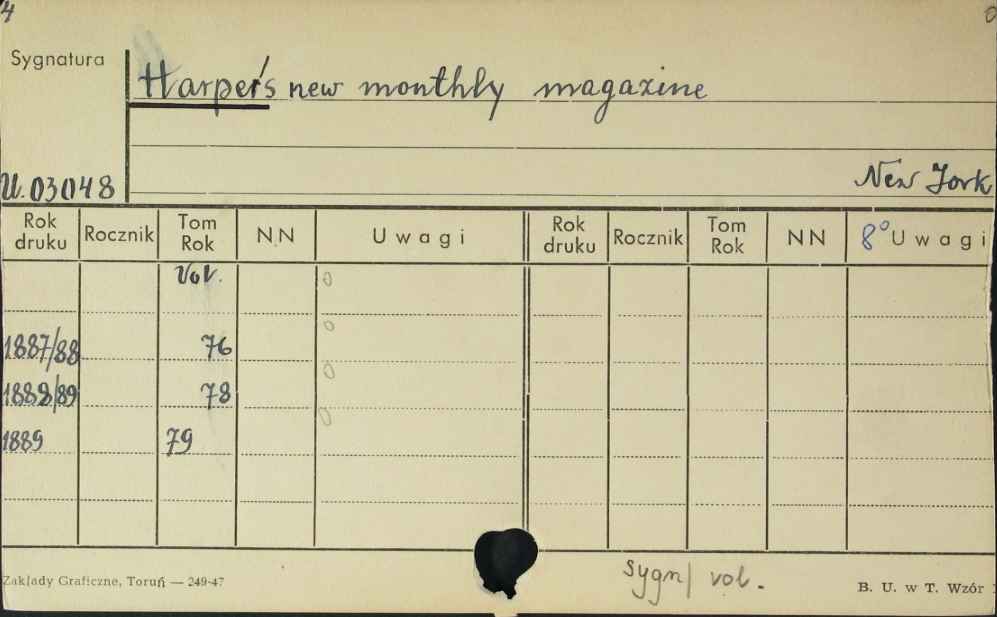 4
Sygnatura
Harper's new monthly magazine
U. 03048
New Jork
Rok druku Rocznik Tom Rok NN Uwagi Rok druku Rocznik Tom Rok NN 8° Uwagi
Vol.
1887/88 76
1888/89 78
1889 79
Sygn/ vol.
Zakłady Graficzne, Toruń — 249-47
B. U. w T. Wzór